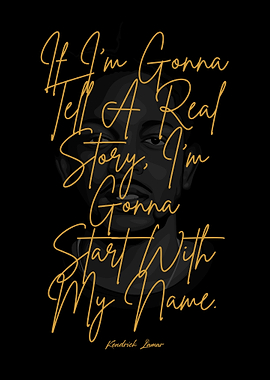 If I'm Gonna
Tell A Real
Story, I'm
Gonna
Start With
My Name.
Kendrick Lamar